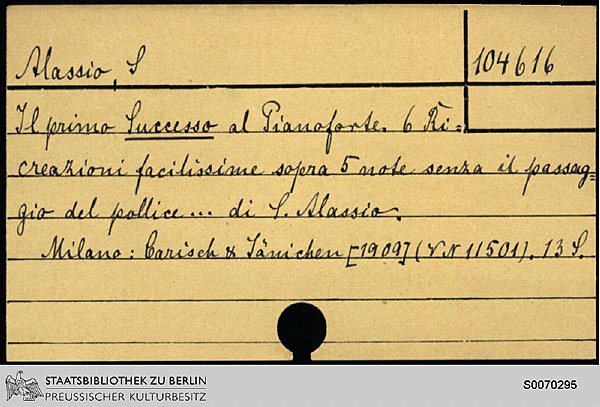 Alassio, S
104616
Il primo Successo al Pianoforte. 6 Ri=
creazioni facilissime sopra 5 note senza il passag=
gio del pollice... di S. Alassio.
Milano: Carisch & Jänichen [1909] (VN 11501). 13 S.
STAATSBIBLIOTHEK ZU BERLIN
PREUSSISCHER KULTURBESITZ
S0070295